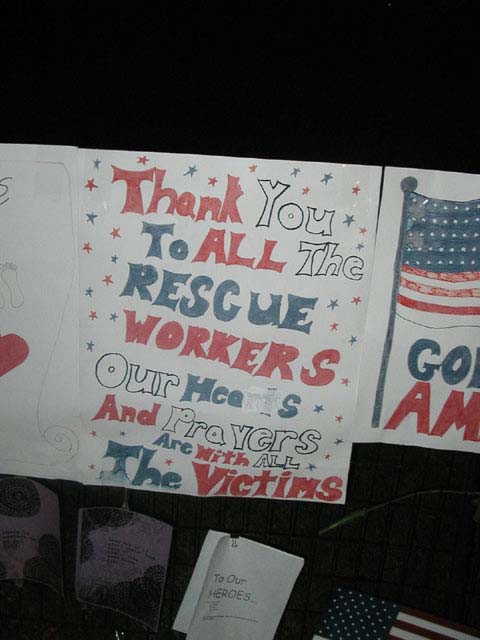 Thank You
To ALL The
RESCUE
WORKERS
Our Hearts
And Prayers
Are With ALL
The Victims
GO
AM
To Our
HEROES...